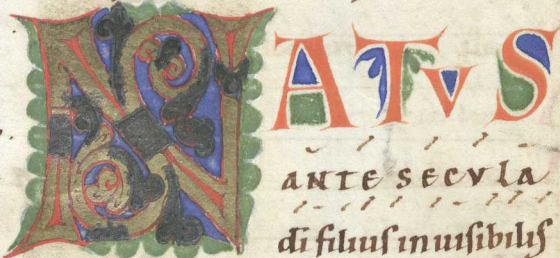 NATVS
ANTE SECVLA
di filius inuisibilis